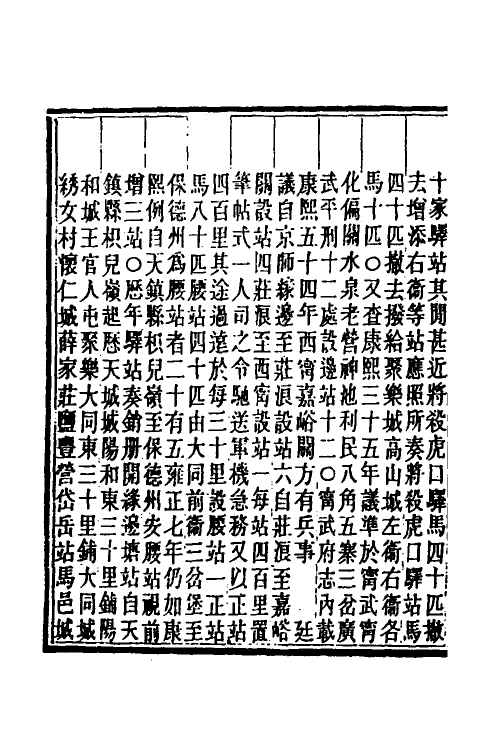 十家驛站其間甚近將殺虎口驛馬四十匹撤
去增添右衞等站應照所奏將殺虎口驛站馬
四十匹撤去撥給聚樂城高山城左衞右衞各
馬十匹○又查康熙三十五年議準於甯武甯
化偏關水泉老營神池利民八角五寨三岔廣
武平刑十二處設邊站十二○甯武府志內載
康熙五十四年西甯嘉峪關方有兵事　　廷
議自京師緣邊至莊浪設站六自莊浪至嘉峪
關設站四莊浪至西甯設站一每站四百里置
筆帖式一人司之令馳送軍機急務又以正站
四百里其途過遠於每三十里設腰站一正站
馬八十匹腰站四十匹由大同前衞三岔堡至
保德州爲腰站者二十有五雍正七年仍如康
熙例自天鎮縣枳兒嶺至保德州安腰站視前
增三站○歷年驛站奏銷册開緣邊墩站自天
鎮縣枳兒嶺起歷天城城陽和東三十里鋪陽
和城王官人屯聚樂大同東三十里鋪大同城
綉女村懷仁城薛家莊鹽豐營岱岳站馬邑城